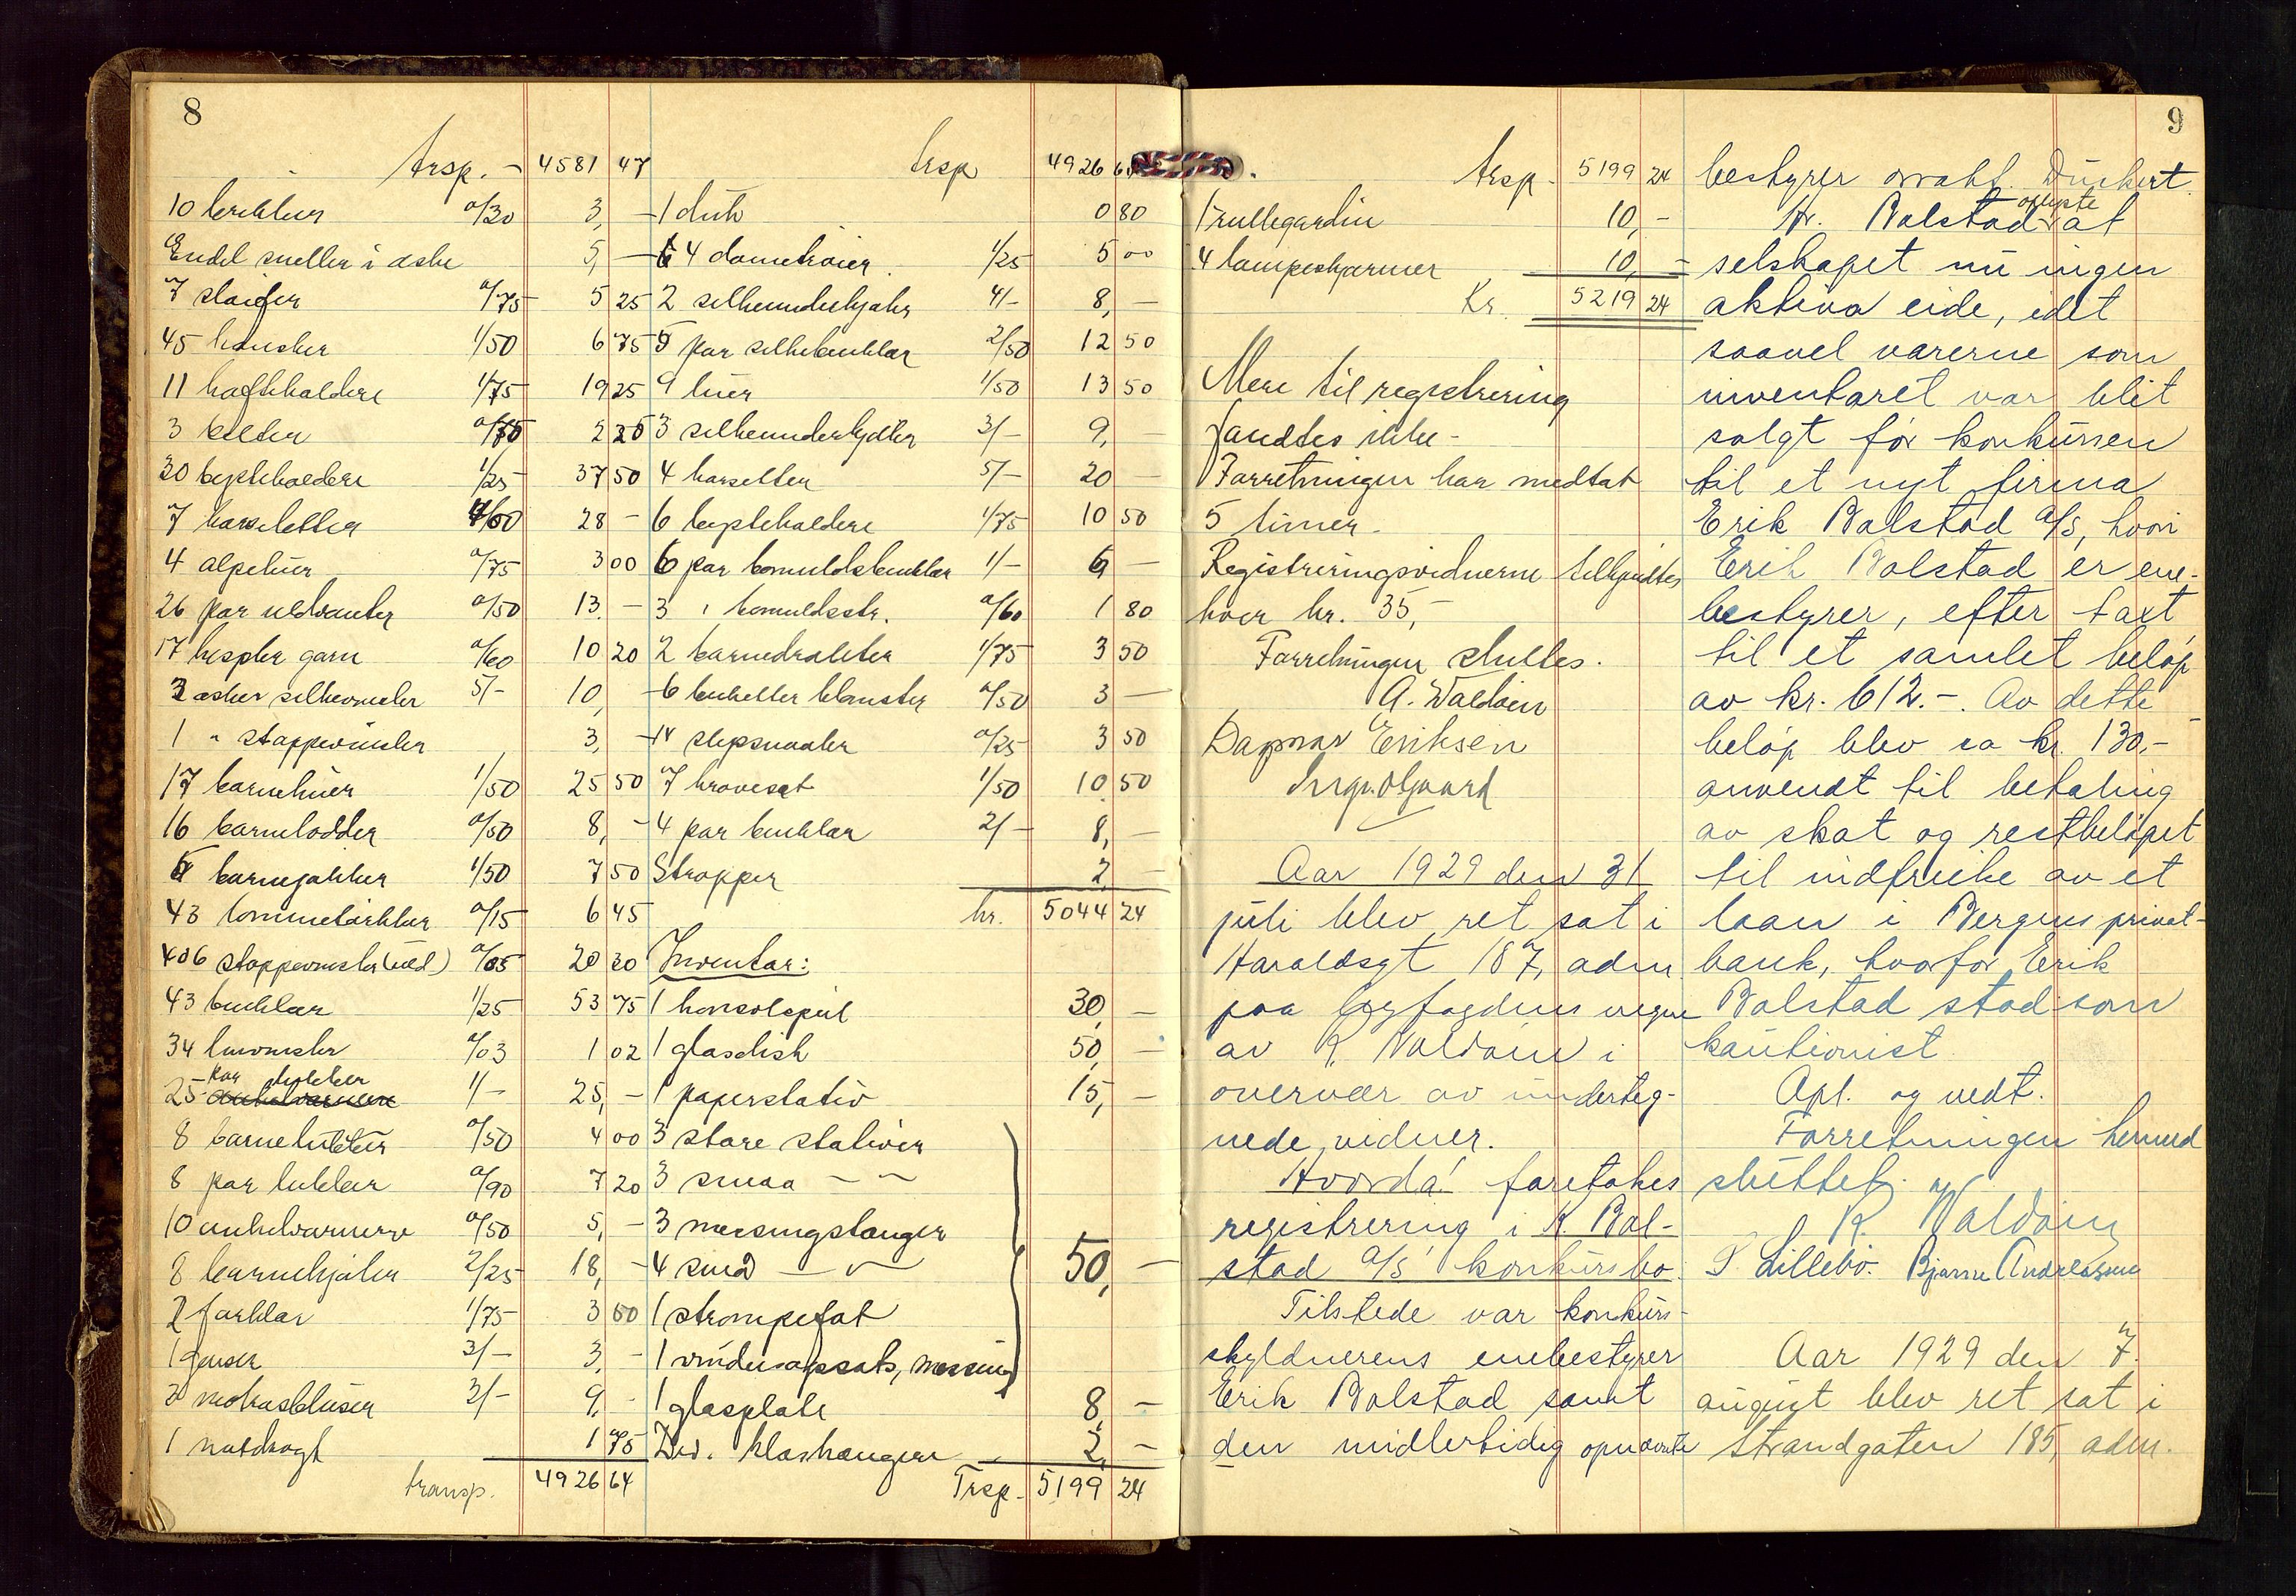 8
trsp. - 4581 47
10 a/30 3, -
Endel sneller i æske 5, -
7 sløifer a/75 5 25
45 hansker 1/50 6 75
11 hofteholdere 1/75 19 25
3 belter a/75 2 25
30 bysteholdere 1/25 37 50
7 korseletter 4/00 28 -
4 alpeluer a/75 3 00
26 par uldvanter a/50 13. -
17 hespler garn a/60 10 20
2 æsker silkevinsler 5/- 10, -
1 " stoppevinsler 3, -
17 barneluer 1/50 25 50
16 barnelodder a/50 8, -
5 barnejakker 1/50 7 50
43 lommetørklær a/15 6 45
406 stoppevinsler (uld) a/05 20 30
43 buklær 1/25 53 75
34 a/03 1 02
25 par 1/- 25, -
8 a/50 4 00
8 par a/90 7 20
10 ankelvarmere a/50 5, -
8 barnekjoler 2/25 18, -
2 forklær 1/75 3 50
1 genser 3/- 3, -
3 3/- 9, -
1 natdragt 1 75
transp. 4926 64
trsp 4926 64
1 duk 0 80
4 dametrøier 1/25 5 00
2 silkeunderkjoler 4/- 8, -
5 par silkebenklær 2/50 12 50
9 luer 1/50 13 50
3 silkeunderlivler 3/- 9, -
4 korseletter 5/- 20 -
6 bysteholdere 1/75 10 50
6 par bomuldsbenklær 1/- 6 -
3 " bomuldsstr. a/60 1 80
2 barnedrakter 1/75 3 50
6 buketter blomster a/50 3 -
14 slipsnaaler a/25 3 50
7 kravesæt 1/50 10 50
4 par benklær 2/- 8, -
Stropper 2, -
kr. 5044 24
Inventar:
1 konsolspeil 30, -
1 glasdisk 50, -
1 papirstativ 15, -
3 store stativer
3 smaa - -
3 messingstanger
4 små - -
50, -
1 strømpefot
1 vinduopsats, messing
1 glasplate 8, -
Div. klæshængere 2, -
Trsp. 5199 24
9
trsp. 5199 24
1 rullegardin 10, -
4 lampeskjærmer 10, -
Kr. 5219 24
Mere til registrering
fandtes ikke -
Forretningen har medtat
5 timer.
Registreringsvidnerne tilkjendtes
hver kr. 35,-
Forretningen sluttes.
A. Waldein
Dagmar Eriksen
Aar 1929 den 31
juli blev ret sat i
Haraldsgt 187, adm
paa byfogdens vegne
av R. Valdøin i
overvær av underteg-
nede vidner.
Hvorda! foretokes
registrering i K. Bol-
stad a/s konkursbo.
Tilstede var konkurs-
skyldnerens enebestyrer
Erik Bolstad samt
den midlertidig opnævnte
bestyrer o.r.sakf. Dückert.
Hr. Bolstad oplyste at
selskapet nu ingen
aktiva eide, idet
saavel varerne som
inventaret var blit
solgt før konkursen
til et nyt firma
Erik Bolstad a/s, hvori
Erik Bolstad er ene-
bestyrer, efter takst
til et samlet beløp
av kr. 612.-. Av dette
beløp blev ca kr. 130,-
anvendt til betaling
av skat og restbeløpet
til indfrielse av et
laan i Bergens privat-
bank, hvorfor Erik
Bolstad stod som
kautionist.
Opl. og vedt.
Forretningen hermed
sluttet.
R. Valdøin
S. Lillebø. Bjarne Andreassen
Aar 1929 den 7.
august blev ret sat i
Strandgaten 185, adm.